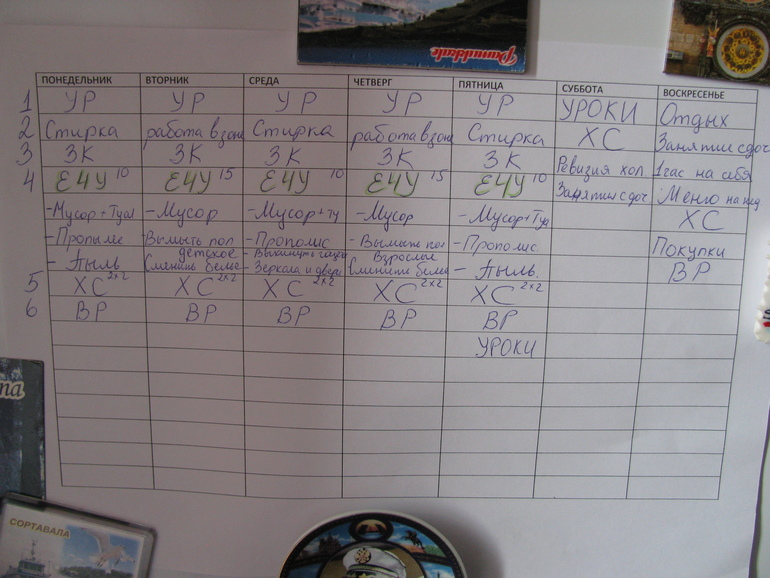 Pamukkale
ПОНЕДЕЛЬНИК ВТОРНИК СРЕДА ЧЕТВЕРГ ПЯТНИЦА СУББОТА ВОСКРЕСЕНЬЕ
1 УР УР УР УР УР УРОКИ Отдых
2 Стирка работа в зоне Стирка работа в зоне Стирка ХС Занятия с доч
3 ЗК ЗК ЗК ЗК ЗК Ревизия хол. 1 час на себя
4 ЕЧУ 10 ЕЧУ 15 ЕЧУ 10 ЕЧУ 15 ЕЧУ 10 Занятия с доч Меню на нед
-Мусор+Туал -Мусор -Мусор+ту -Мусор -Мусор+Туа ХС
-Пропылес Вымыть пол -Прополис -Вымыть пол -Прополис Покупки
- Пыль детское Сменить белье - Выкинуть - Зеркала и двери Взрослое Сменить белье - Пыль. ВР
5 ХС 2×2 ХС 2×2 ХС 2×2 ХС 2×2 ХС 2×2
6 ВР ВР ВР ВР ВР
УРОКИ
СОРТАВАЛА